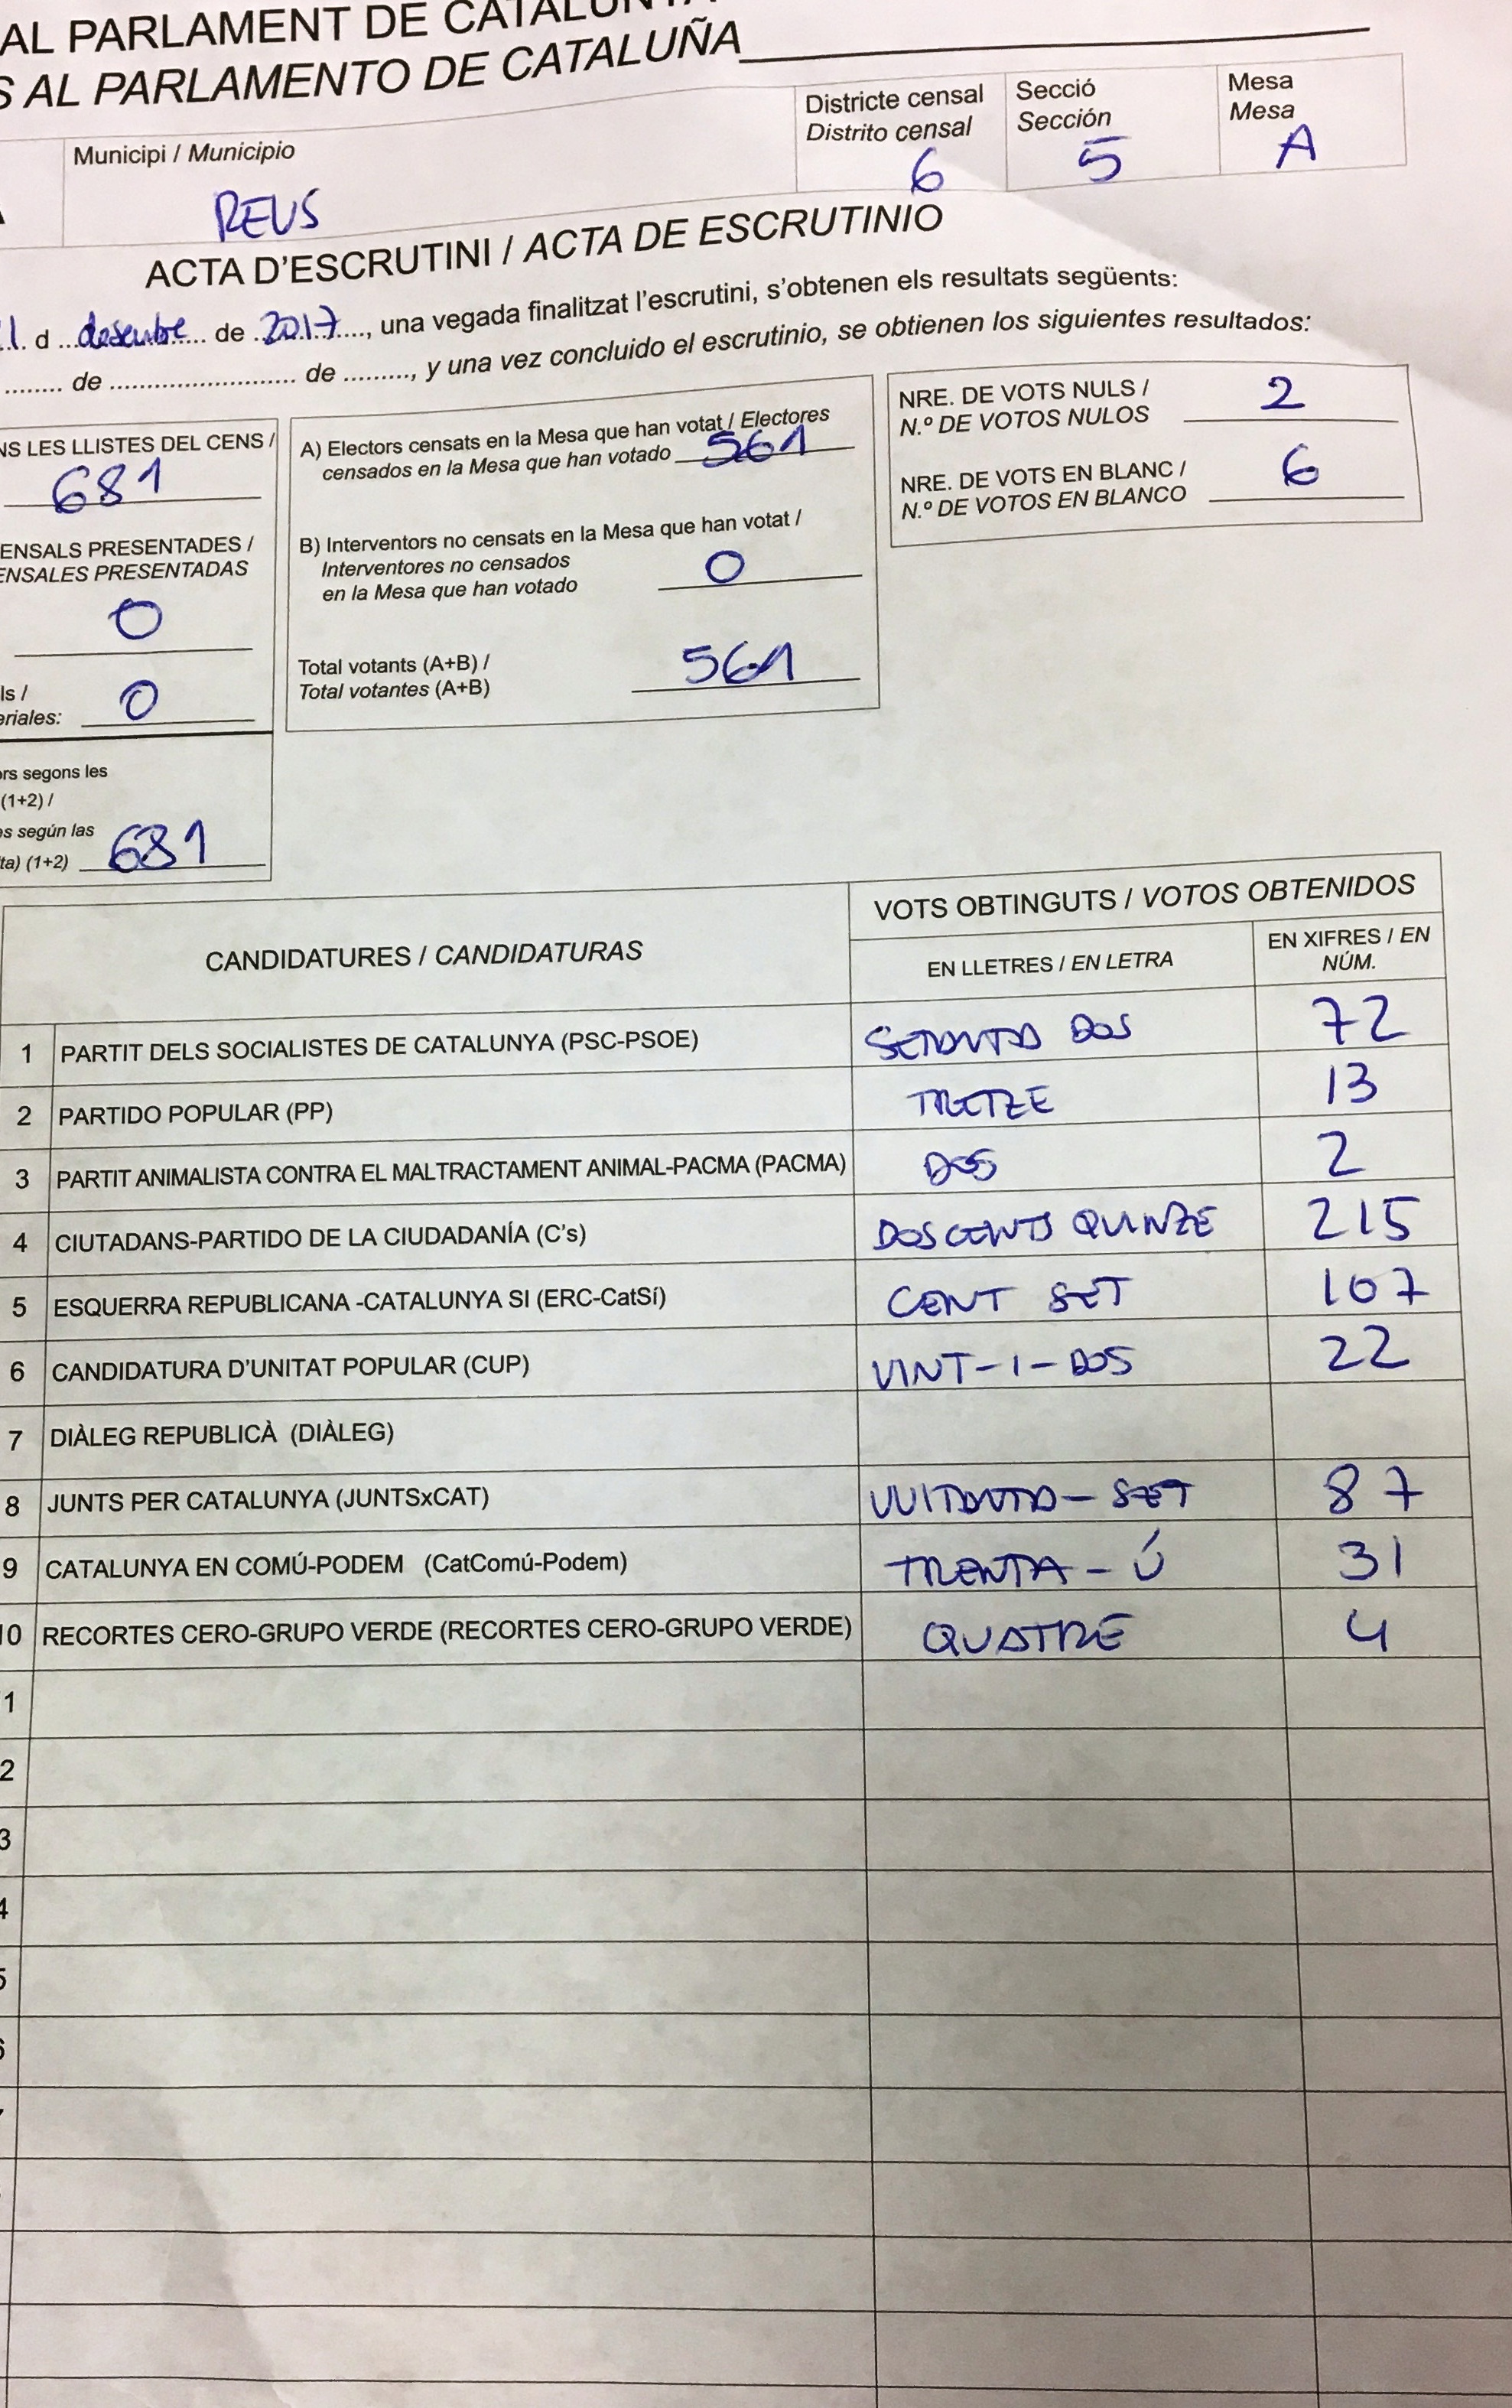 AL PARLAMENT DE CATALUNYA
S AL PARLAMENTO DE CATALUÑA
Municipi / Municipio
REUS
Districte censal
Distrito censal
6
Secció
Sección
5
Mesa
Mesa
A
ACTA D'ESCRUTINI / ACTA DE ESCRUTINIO
d desembre de 2017, una vegada finalitzat l'escrutini, s'obtenen els resultats següents:
de de, y una vez concluido el escrutinio, se obtienen los siguientes resultados:
NS LES LLISTES DEL CENS /
681
ENSALS PRESENTADES /
ENSALES PRESENTADAS
0
ls /
eriales: 0
ors segons les
(1+2) /
es según las
ta) (1+2) 681
A) Electors censats en la Mesa que han votat / Electores
censados en la Mesa que han votado 561
B) Interventors no censats en la Mesa que han votat /
Interventores no censados
en la Mesa que han votado 0
Total votants (A+B) /
Total votantes (A+B) 561
NRE. DE VOTS NULS /
N.º DE VOTOS NULOS 2
NRE. DE VOTS EN BLANC /
N.º DE VOTOS EN BLANCO 6
CANDIDATURES / CANDIDATURAS
VOTS OBTINGUTS / VOTOS OBTENIDOS
EN LLETRES / EN LETRA
EN XIFRES / EN
NÚM.
1 PARTIT DELS SOCIALISTES DE CATALUNYA (PSC-PSOE) SETANTA DOS 72
2 PARTIDO POPULAR (PP) TRETZE 13
3 PARTIT ANIMALISTA CONTRA EL MALTRACTAMENT ANIMAL-PACMA (PACMA) DOS 2
4 CIUTADANS-PARTIDO DE LA CIUDADANÍA (C's) DOSCENTS QUINZE 215
5 ESQUERRA REPUBLICANA -CATALUNYA SI (ERC-CatSí) CENT SET 107
6 CANDIDATURA D'UNITAT POPULAR (CUP) VINT-I-DOS 22
7 DIÀLEG REPUBLICÀ (DIÀLEG)
8 JUNTS PER CATALUNYA (JUNTSxCAT) VUITANTA-SET 87
9 CATALUNYA EN COMÚ-PODEM (CatComú-Podem) TRENTA-Ú 31
10 RECORTES CERO-GRUPO VERDE (RECORTES CERO-GRUPO VERDE) QUATRE 4
1
2
3
4
5
6